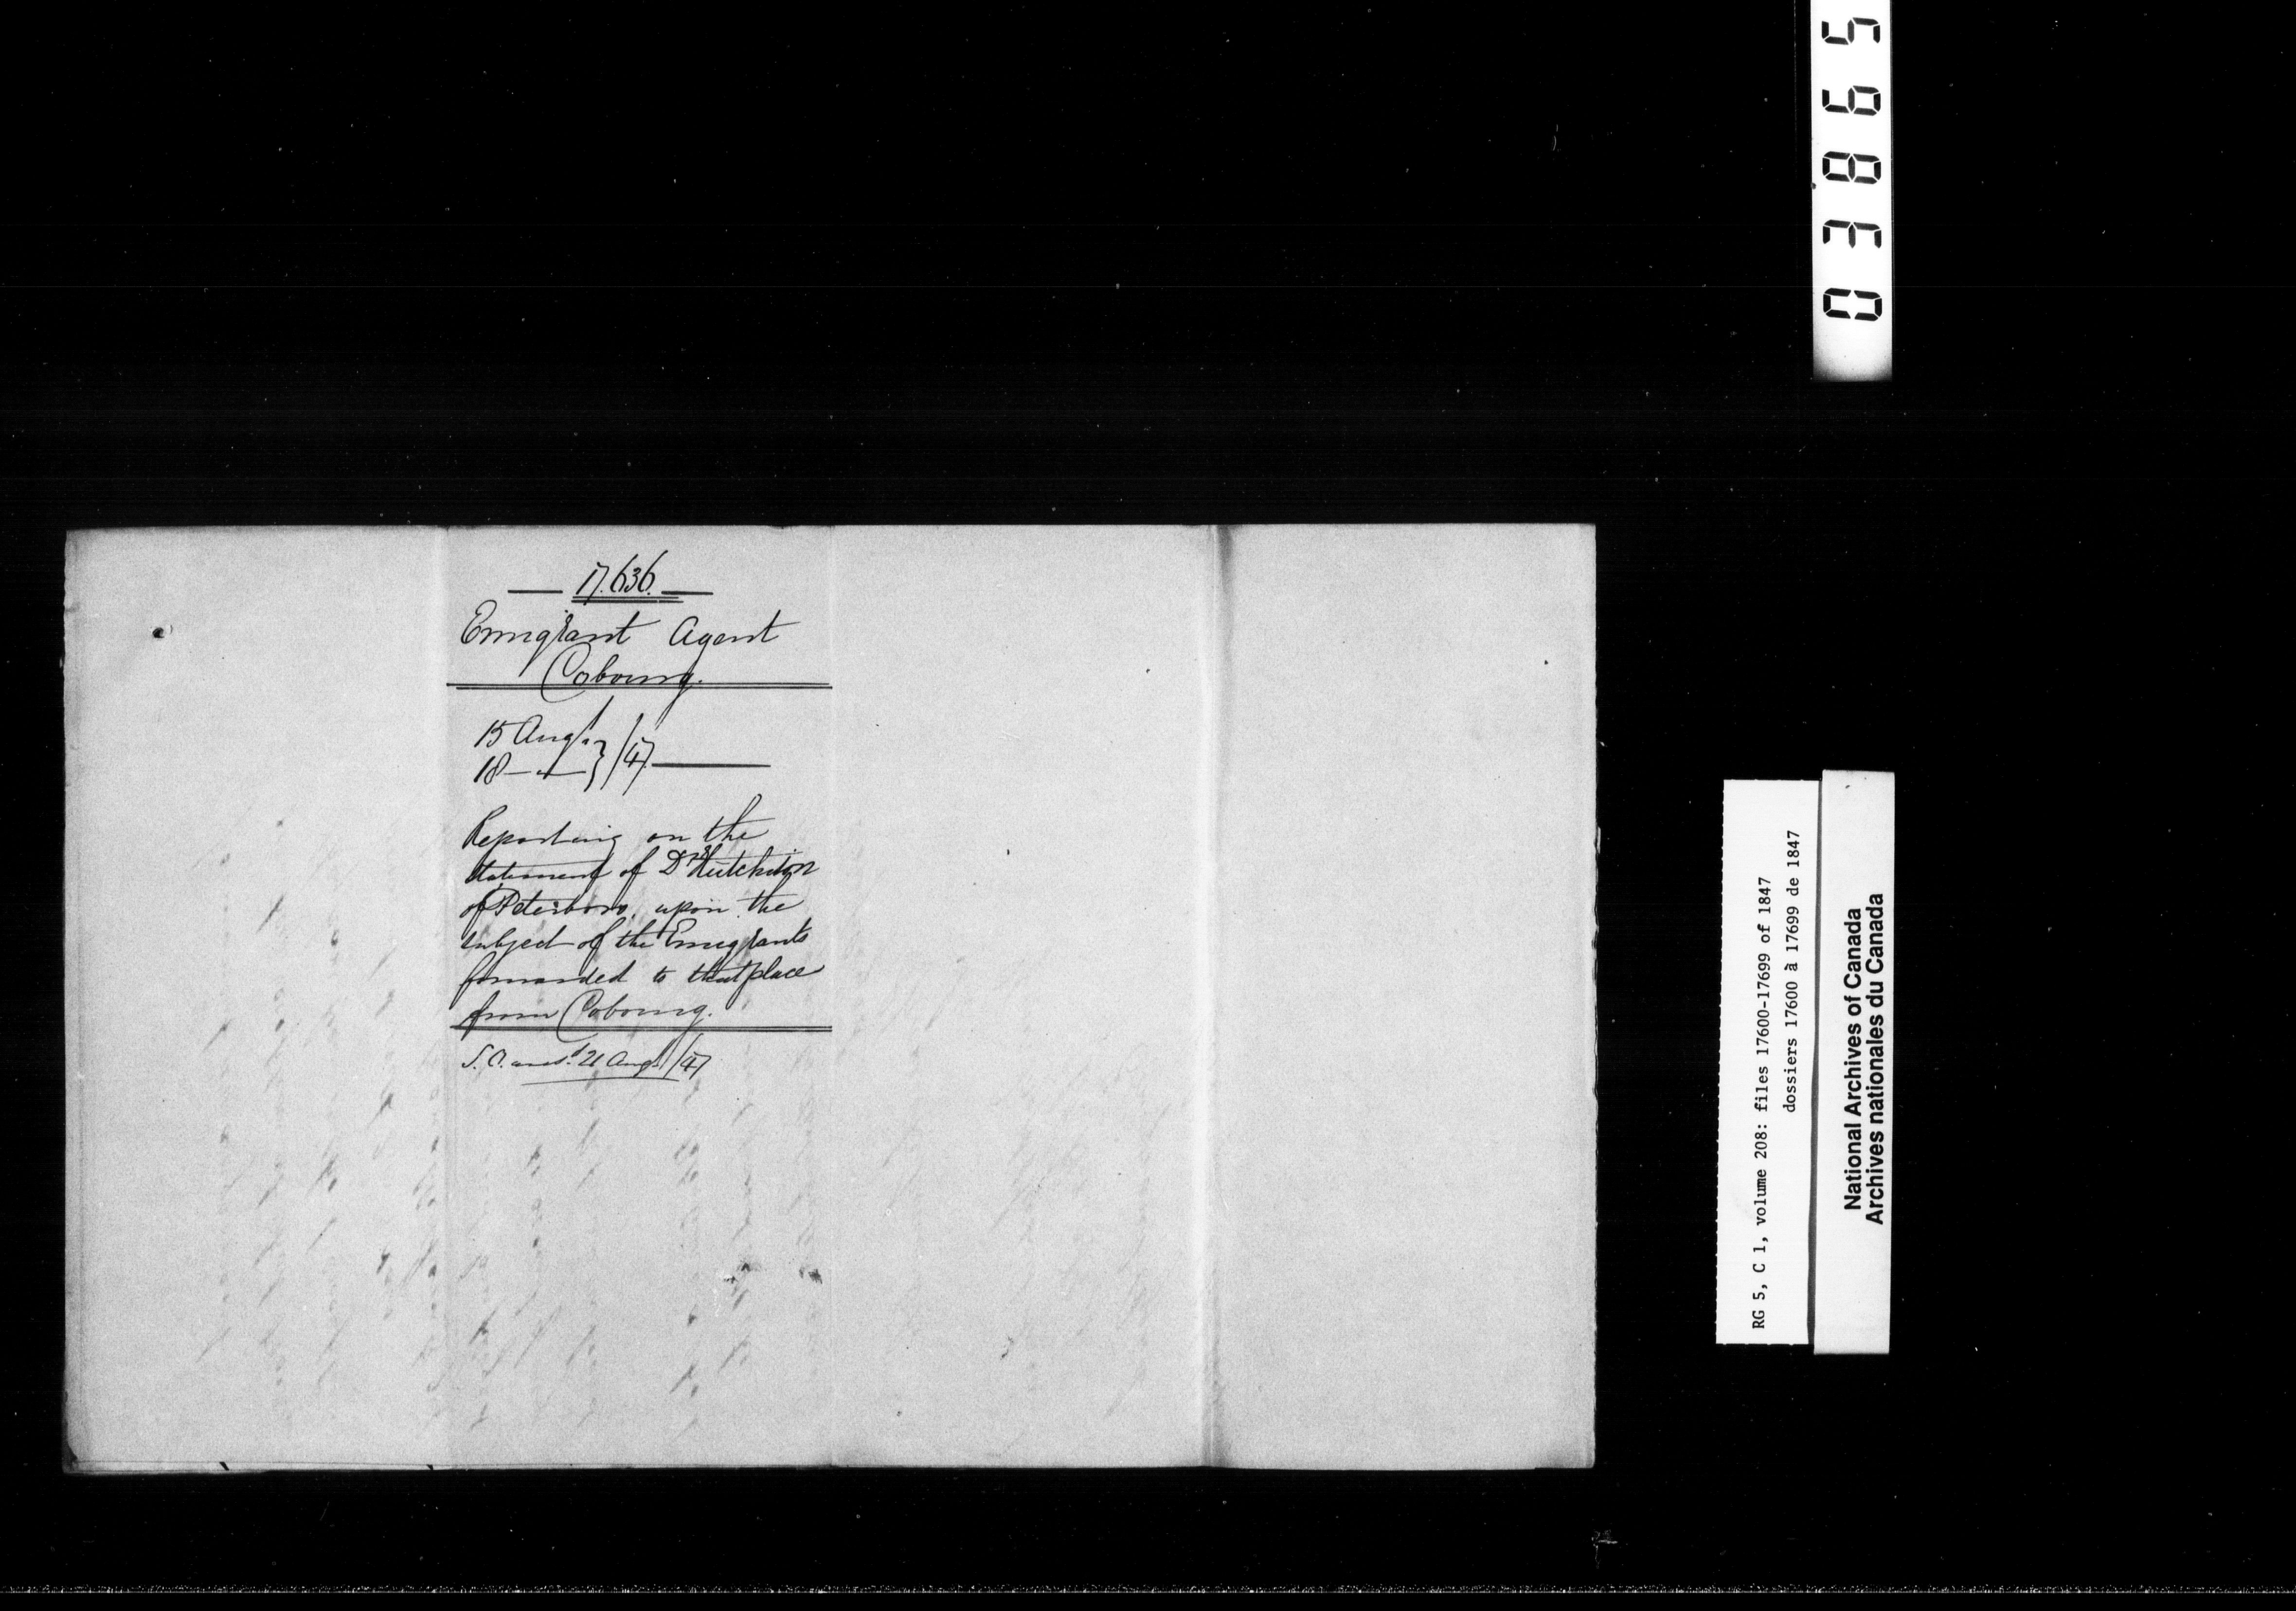 17.636.
Emigrant Agent
Cobourg.
15 Augt. } /47.
18 — " — }
Reporting on the
statement of Dr Hutchison
of Peterboro, upon the
subject of the Emigrants
forwarded to that place
from Cobourg.
21 Augt /47
03865
RG 5, C 1, volume 208: files 17600-17699 of 1847
dossiers 17600 à 17699 de 1847
National Archives of Canada
Archives nationales du Canada